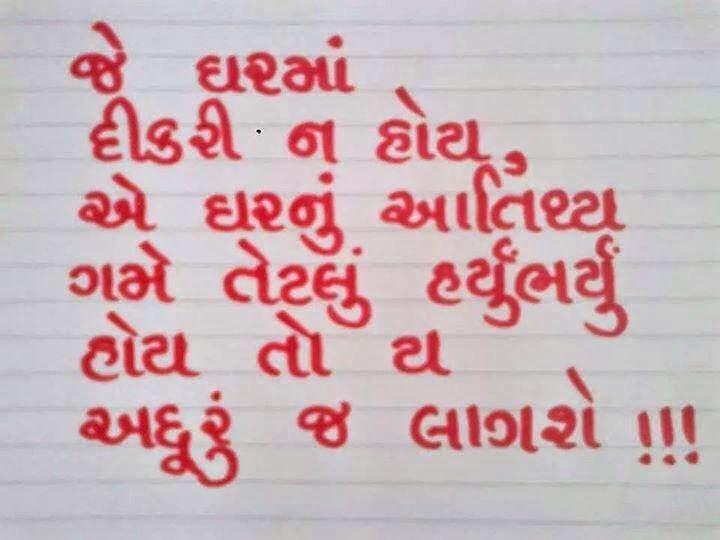 જે ઘરમાં
દીકરી ન હોય,
એ ઘરનું આતિથ્ય
ગમે તેટલું હર્યુંભર્યું
હોય તો ય
અદ્દૂરું જ લાગશે !!!